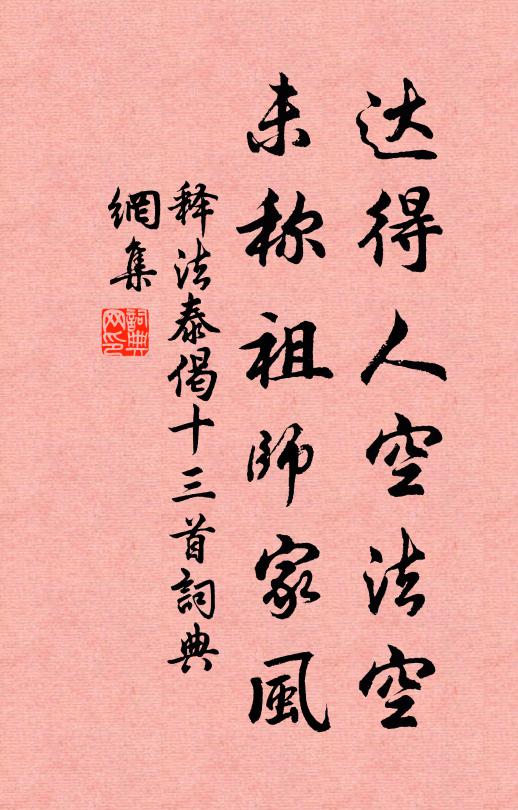 达得人空法空
未称祖師家風
释法泰偈十三首詞典
網集
詞典
网印